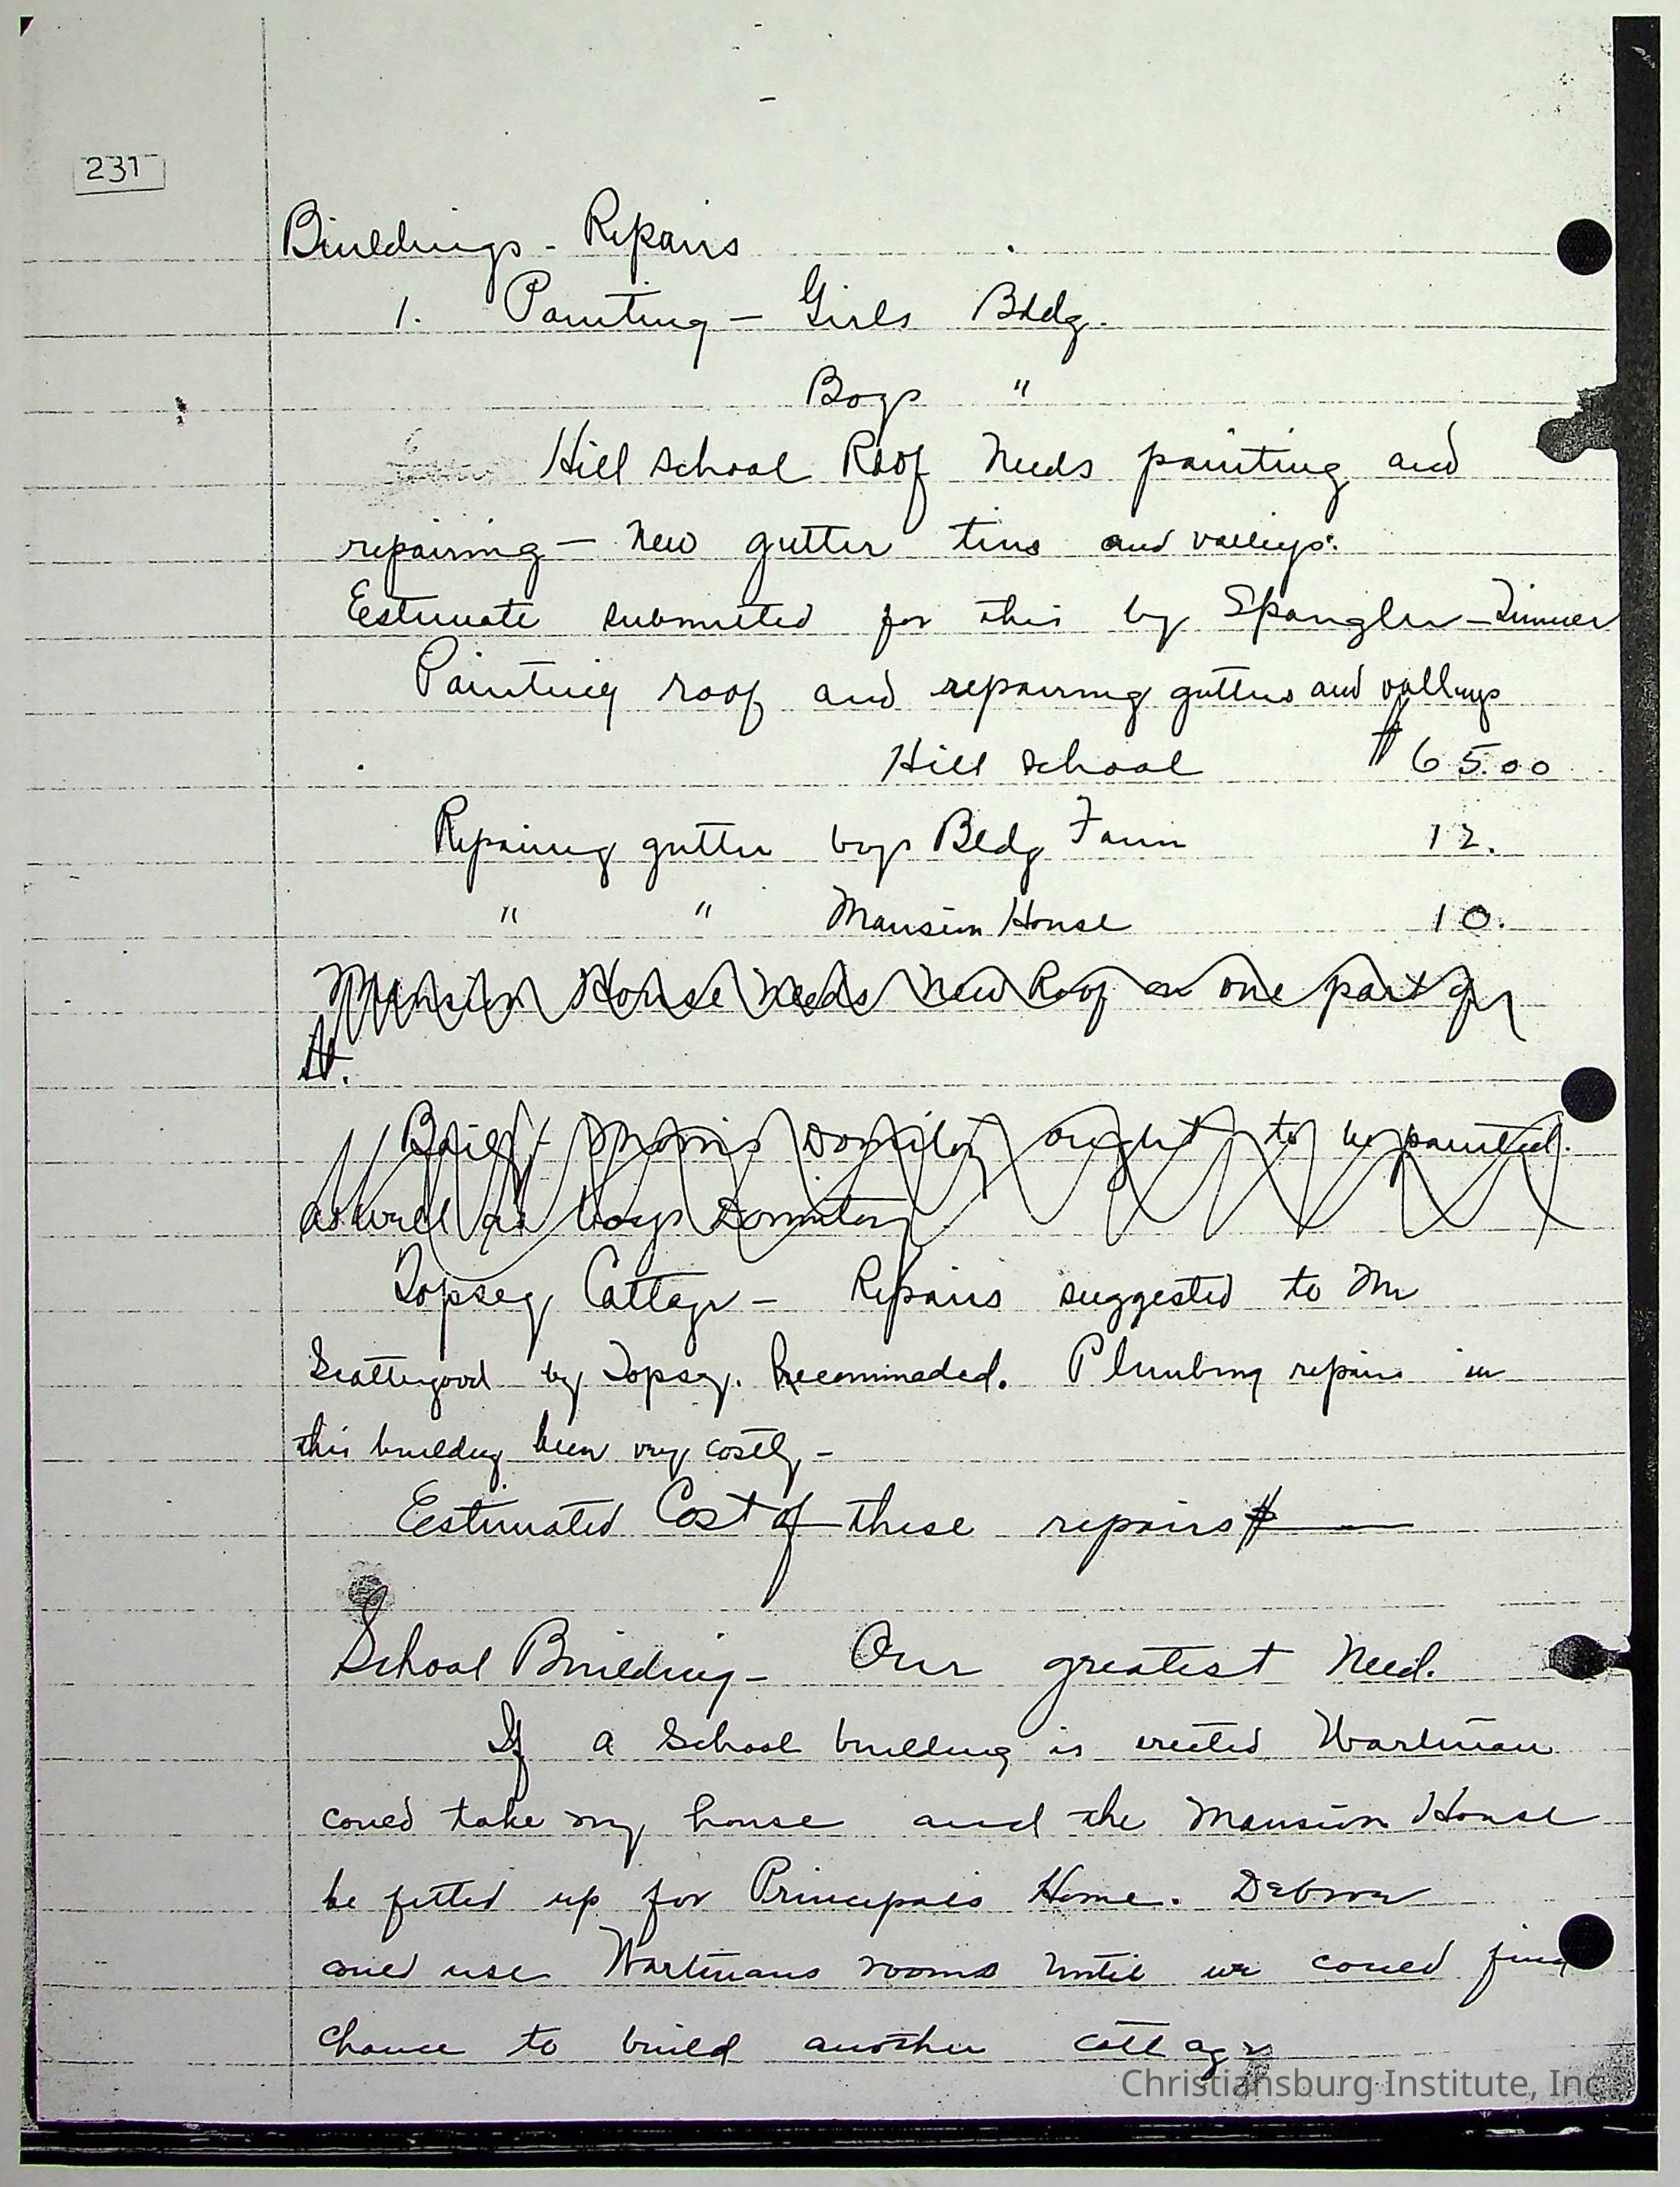 231
Buildings - Repairs
1. Painting - Girls Bldg.
Boys "
Hill school Roof needs painting and
repairing - new gutter tins and valleys.
Estimate submitted for this by Spangler - Tinner
Painting roof and repairing gutters and valleys
Hill school $65.00
Repairing gutter boys Bldg Farm 12.
" " Mansion House 10.
Mansion House Needs New Roof on one part of
it.
Morris Dormitory ought to be painted.
as well as boys Dormitory
Topsey Cottage - Repairs suggested to Mr
Scattergood by Topsey. Recommeded. Plumbing repairs in
this building been very costly -
Estimated Cost of these repairs $
School Building - Our greatest need.
If a school building is erected Wartman
could take my house and the Mansion House
be fitted up for Principals Home.
could use Wartmans rooms until we could find
chance to build another cottage
Christiansburg Institute, Inc